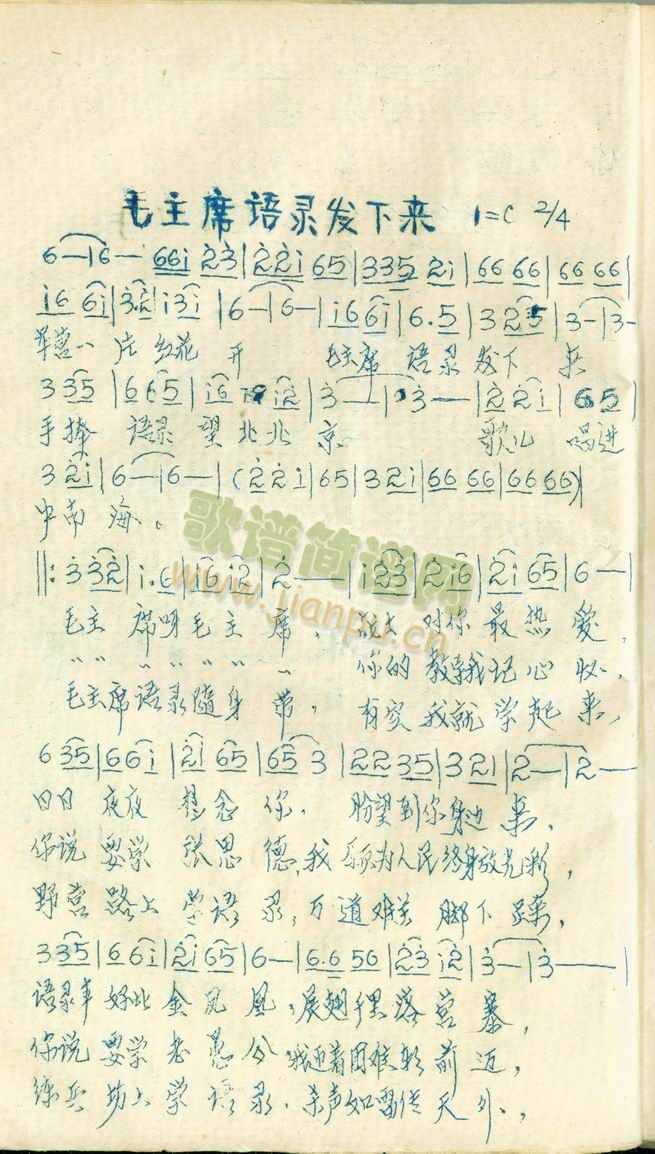 毛主席语录发下来 1=C 2/4
6—|6— 66i 23|22i 65|335 2i|66 66|66 66|
i6 6i|32 i3i|6—|6—|i6 6i|6.5|3 25|3—|3—
军营一片红花开 毛主席语录发下来
335|665|i6 i2|3—|3—|22i|65|
手捧语录望北京 歌儿唱进
32i|6—|6—|(22i|65|32i|66 66|66 66)|
中南海。
歌谱简谱网
www.jianpu.cn
‖:332|i.6|i6 i2|2——|i33|2i6|2i 65|6—|
毛主席呀毛主席， 对你最热爱，
〃〃〃〃〃〃 你的教导我记心怀，
毛主席语录随身带， 有空我就学起来，
6 35|66i|2i 65|65 3|22 35|3 21|2—|2—
日日夜夜想念你， 盼望到你身边来，
你说要学张思德，我 为人民终身放光彩，
野营路上学语录，万道难关脚下踩，
335|66i|2i65|6—|6.6 56|23 i2|3—|3——|
语录本好比金凤凰，展翅 落营寨，
你说要学老愚公，我迎着困难 前迈，
练兵场上学语录，杀声如雷传天外，